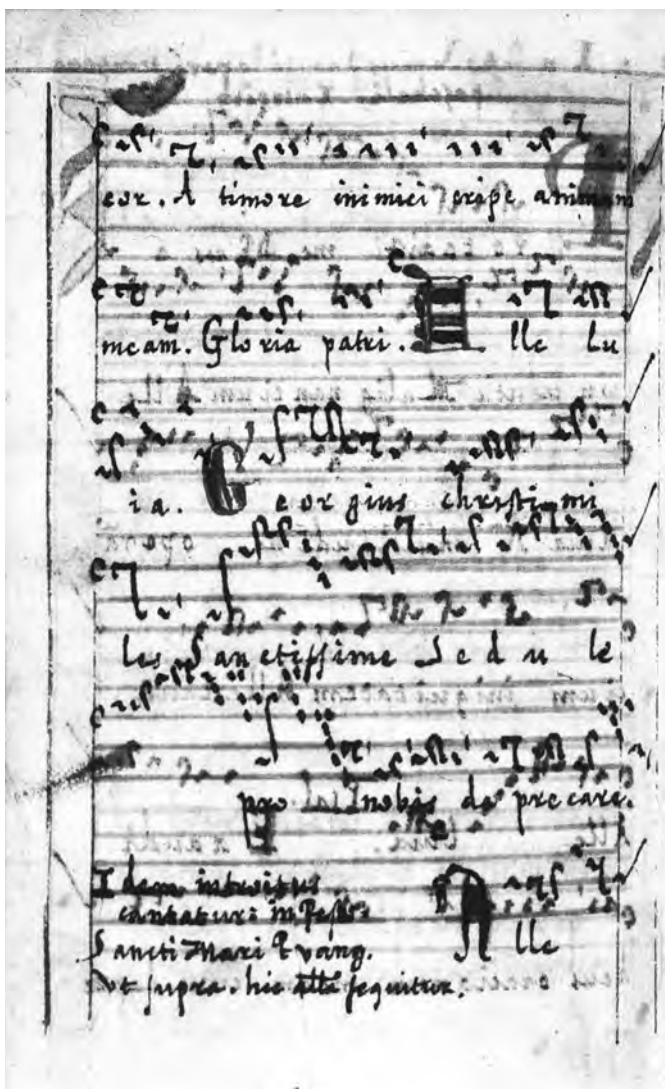 cor. A timore inimici eripe animam
meam. Gloria patri. Alle lu
ia. Georgius christi mi
les Sanctissime Sedu le
pro nobis de precare.
Idem introitus
cantatur in Festo
Sancti Marci Evang.
Ut supra. hic alla sequitur.
Alle